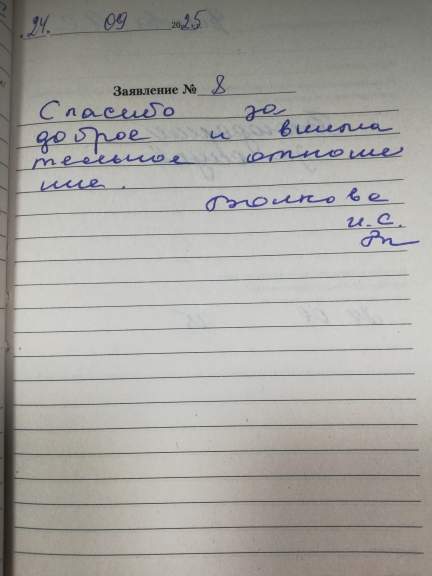 24. 09 2025
Заявление № 8
Спасибо за
доброе и внима
тельное отноше
ние.
Волкова
И.С.